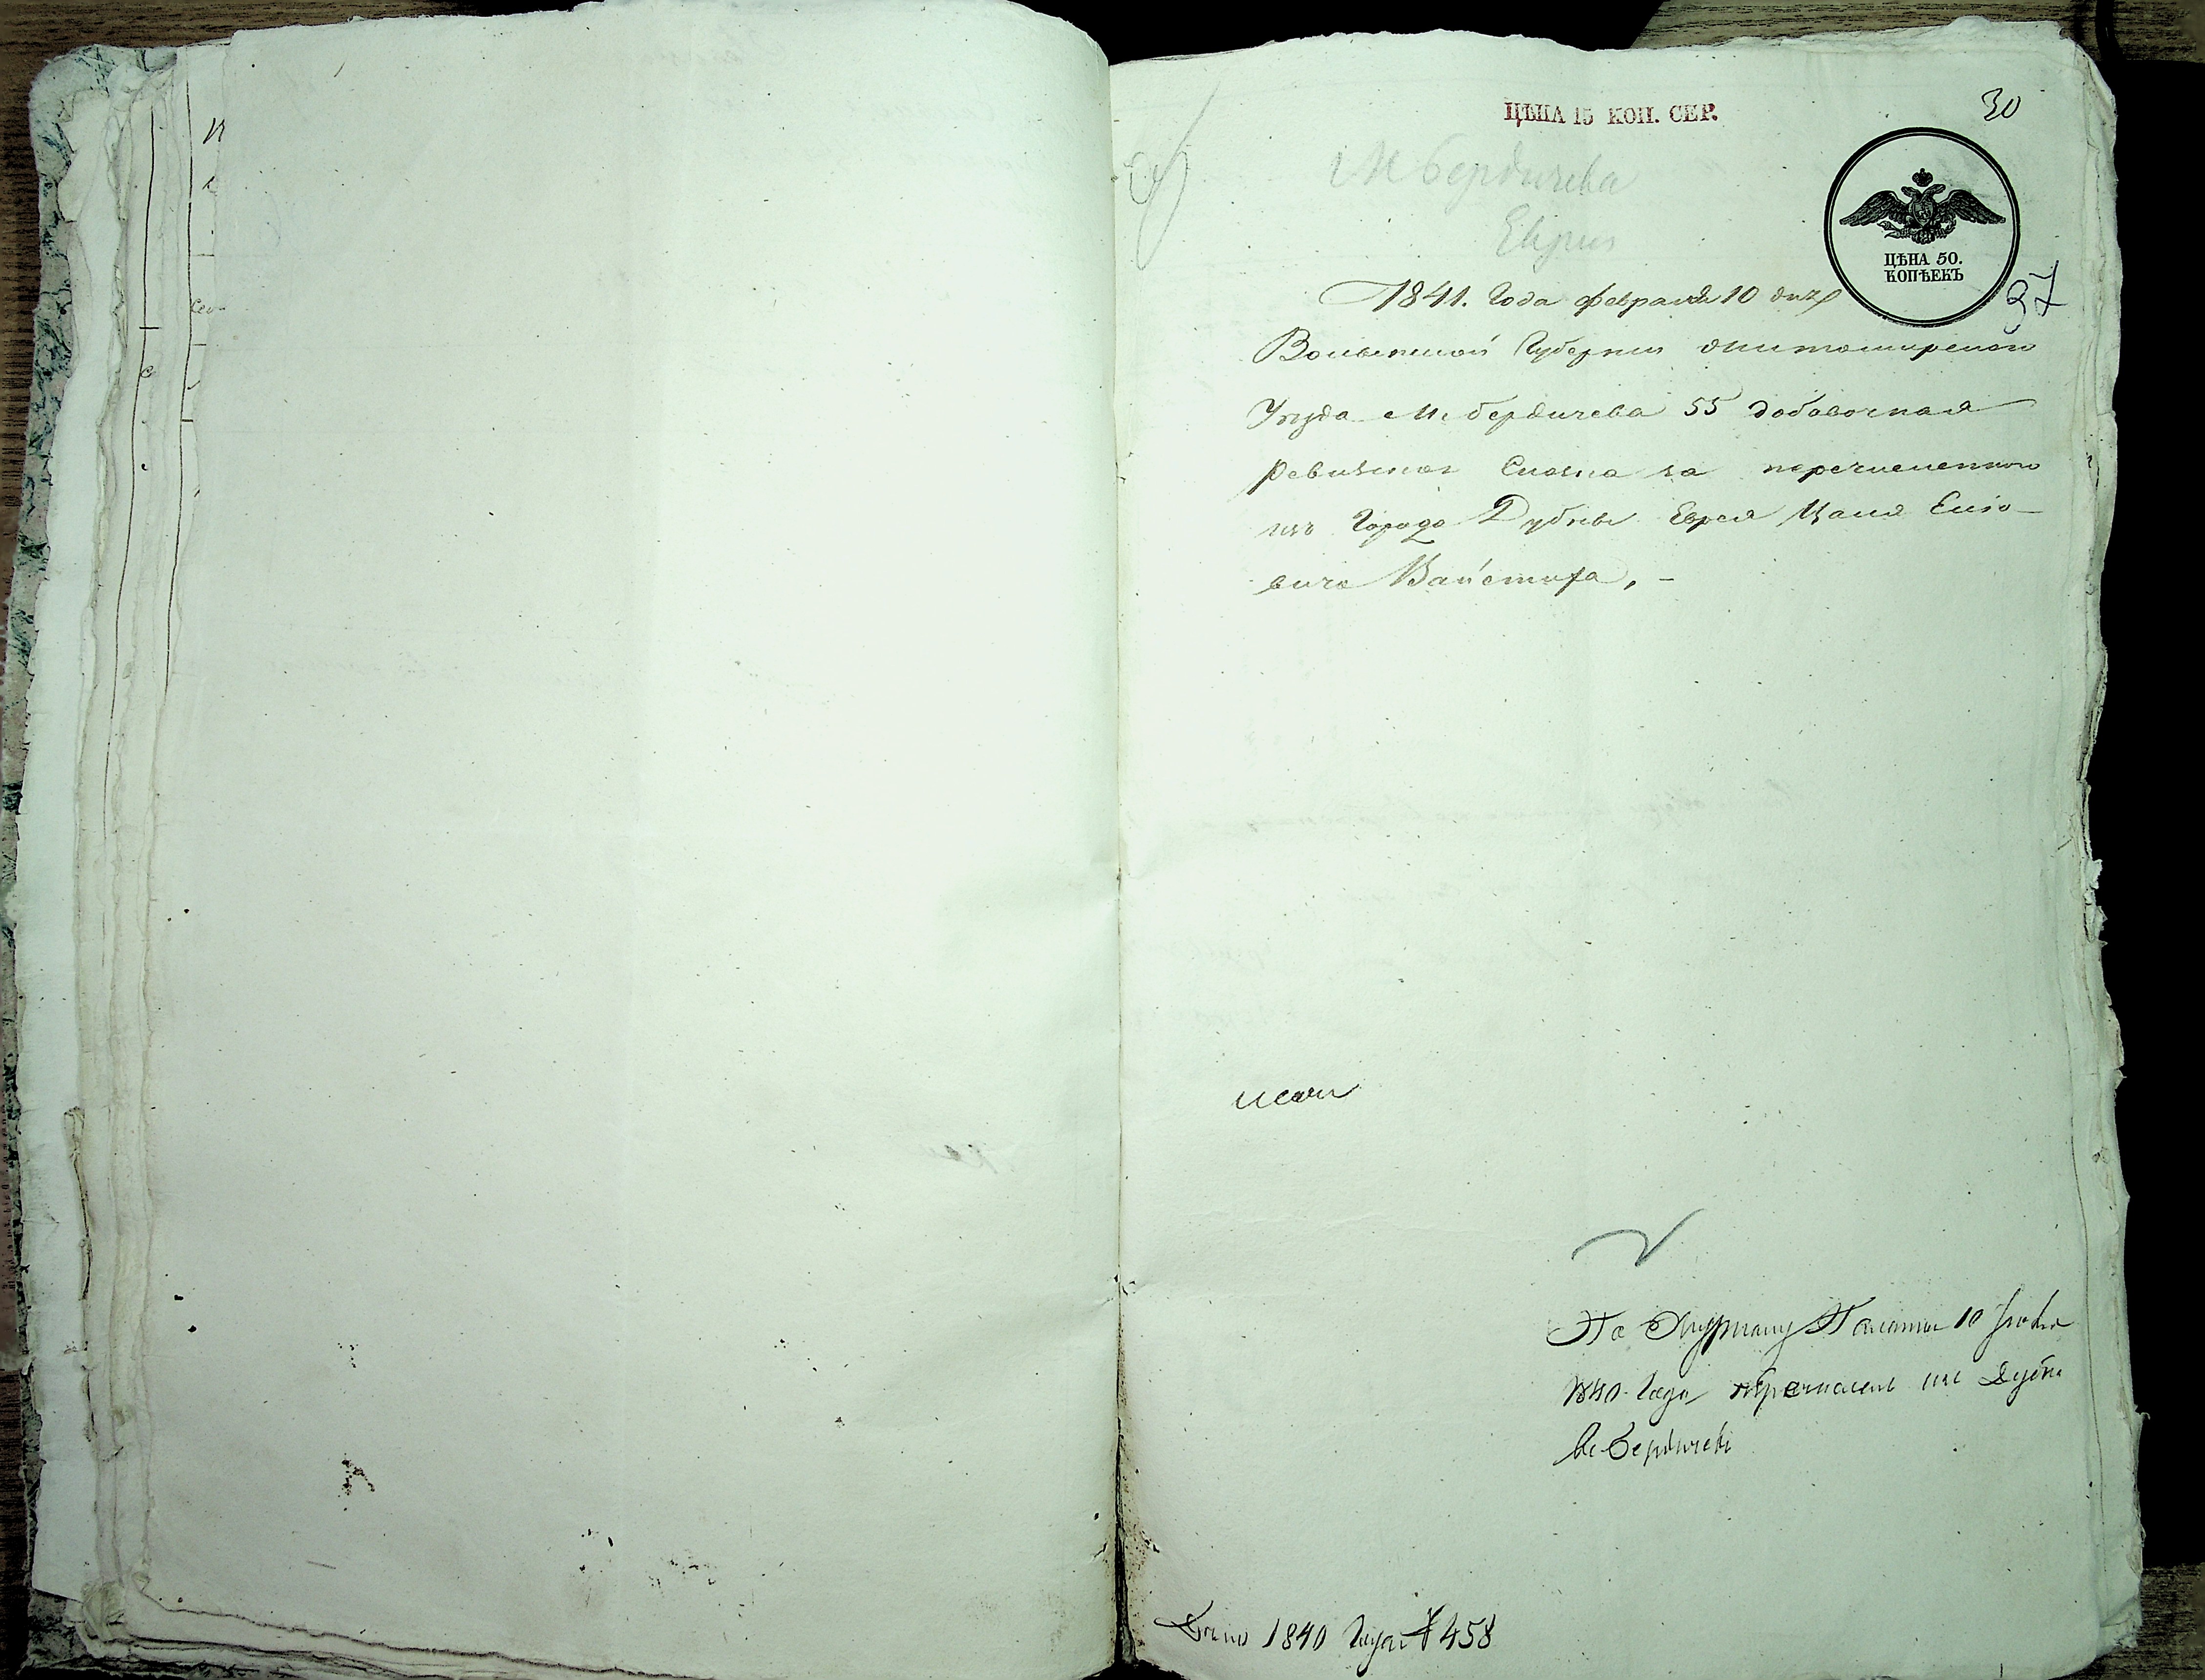 ЦѢНА 15 КОП. СЕР.
30
М Бердичева
Евреи
ЦѢНА 50.
КОПѢЕКЪ
37
1841. Года февраля 10 дня
Волынской Губернии Житомирского
Уезда М. бердичева 55 добавочная
Ревизская Сказка за перечисленного
изъ Города Дубны Еврея
вича Вайстиха, -
По Журналу Палаты 10
1840 Года перечислен из Дубна
в Бердичев
Дело 1840 Года № 458